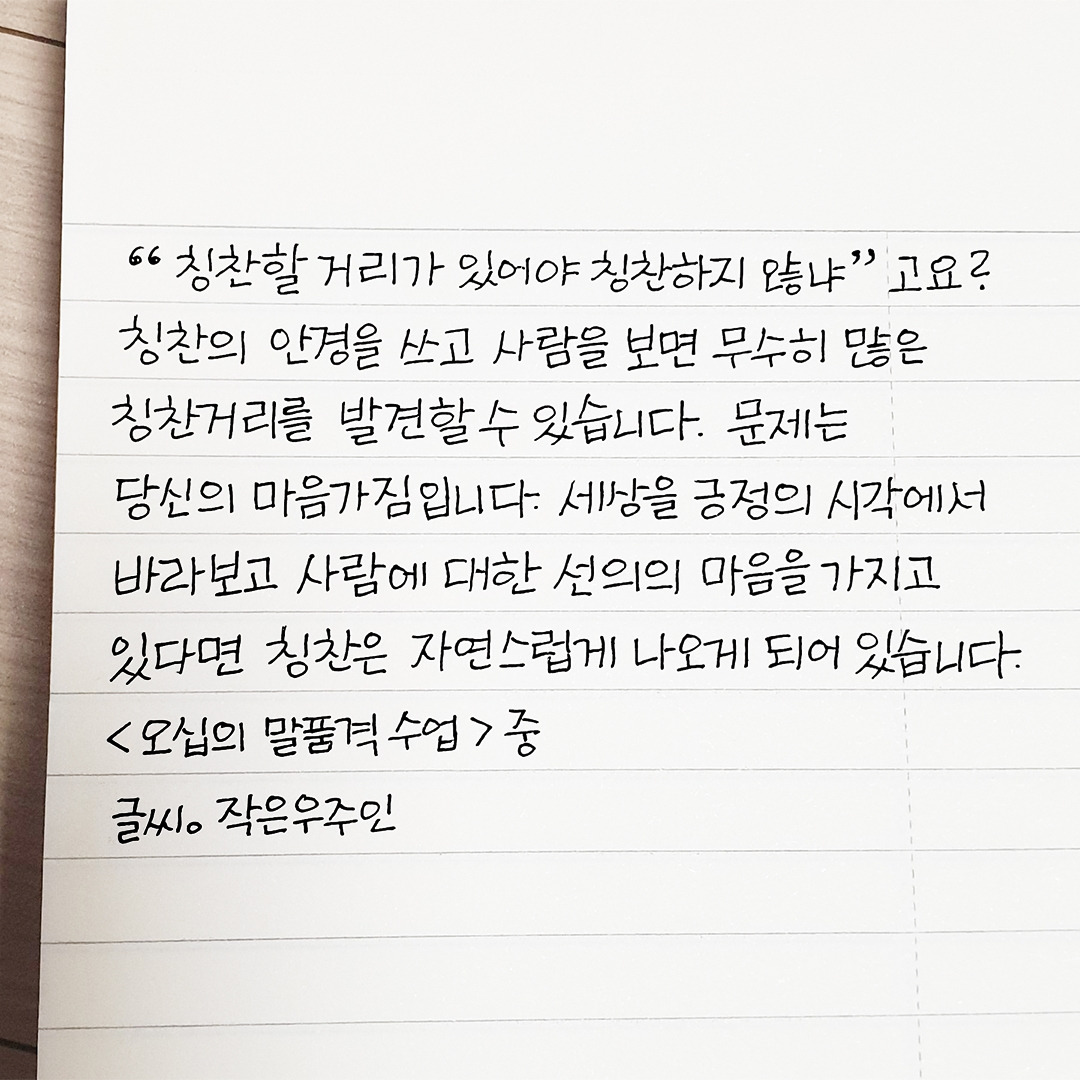 “칭찬할 거리가 있어야 칭찬하지 않냐” 고요?
칭찬의 안경을 쓰고 사람을 보면 무수히 많은
칭찬거리를 발견할 수 있습니다. 문제는
당신의 마음가짐입니다. 세상을 긍정의 시각에서
바라보고 사람에 대한 선의의 마음을 가지고
있다면 칭찬은 자연스럽게 나오게 되어 있습니다.
<오십의 말품격 수업> 중
글씨。작은우주인